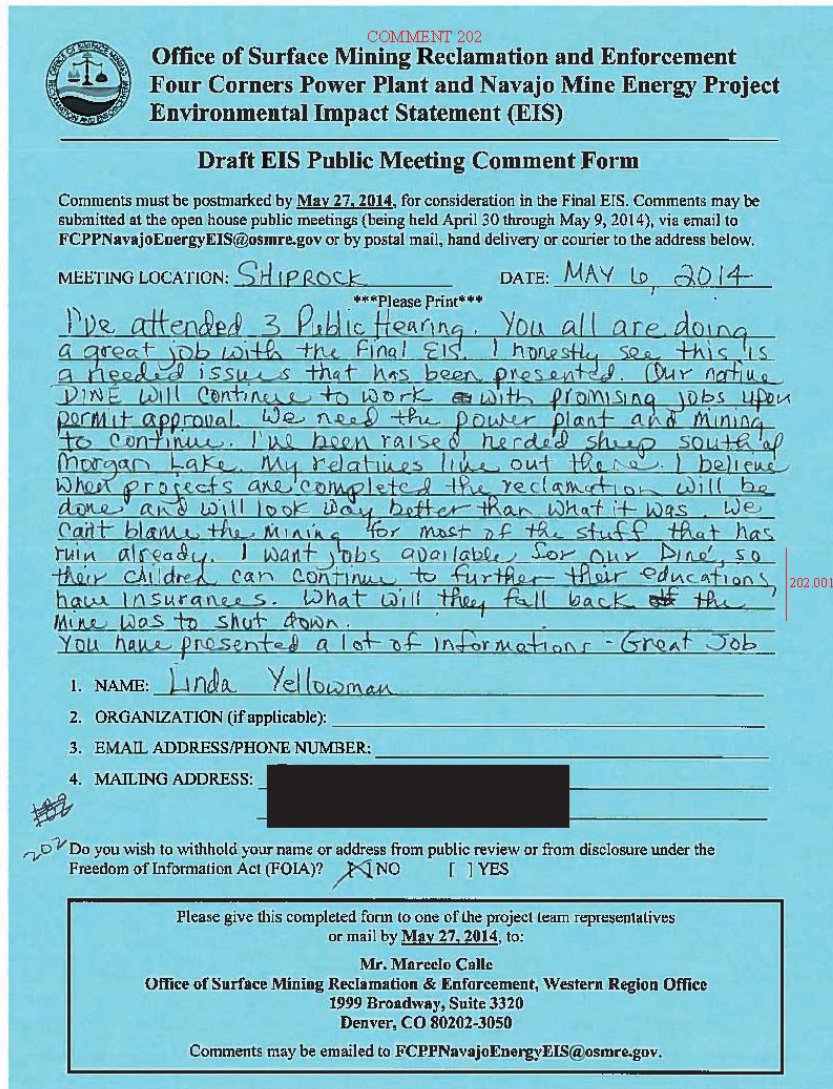 COMMENT 202
Office of Surface Mining Reclamation and Enforcement
Four Corners Power Plant and Navajo Mine Energy Project
Environmental Impact Statement (EIS)
Draft EIS Public Meeting Comment Form
Comments must be postmarked by May 27, 2014, for consideration in the Final EIS. Comments may be
submitted at the open house public meetings (being held April 30 through May 9, 2014), via email to
FCPPNavajoEnergyEIS@osmre.gov or by postal mail, hand delivery or courier to the address below.
MEETING LOCATION: SHIPROCK DATE: MAY 6, 2014
***Please Print***
I've attended 3 Public Hearing. You all are doing
a great job with the Final EIS. I honestly see this is
a needed issues that has been presented. Our native
DINE will continue to work with promising jobs upon
permit approval. We need the power plant and mining
to continue. I've been raised herded sheep south of
Morgan Lake. My relatives live out there. I believe
when projects are completed the reclamation will be
done and will look way better than what it was. We
can't blame the mining for most of the stuff that has
ruin already. I want jobs available for our Diné, so
their children can continue to further their educations,
have insurances. What will they fall back if the
Mine was to shut down.
202.001
You have presented a lot of informations - Great Job
1. NAME: Linda Yellowman
2. ORGANIZATION (if applicable):
3. EMAIL ADDRESS/PHONE NUMBER:
4. MAILING ADDRESS:
202
Do you wish to withhold your name or address from public review or from disclosure under the
Freedom of Information Act (FOIA)? [X] NO [ ] YES
Please give this completed form to one of the project team representatives
or mail by May 27, 2014, to:
Mr. Marcelo Calle
Office of Surface Mining Reclamation & Enforcement, Western Region Office
1999 Broadway, Suite 3320
Denver, CO 80202-3050
Comments may be emailed to FCPPNavajoEnergyEIS@osmre.gov.